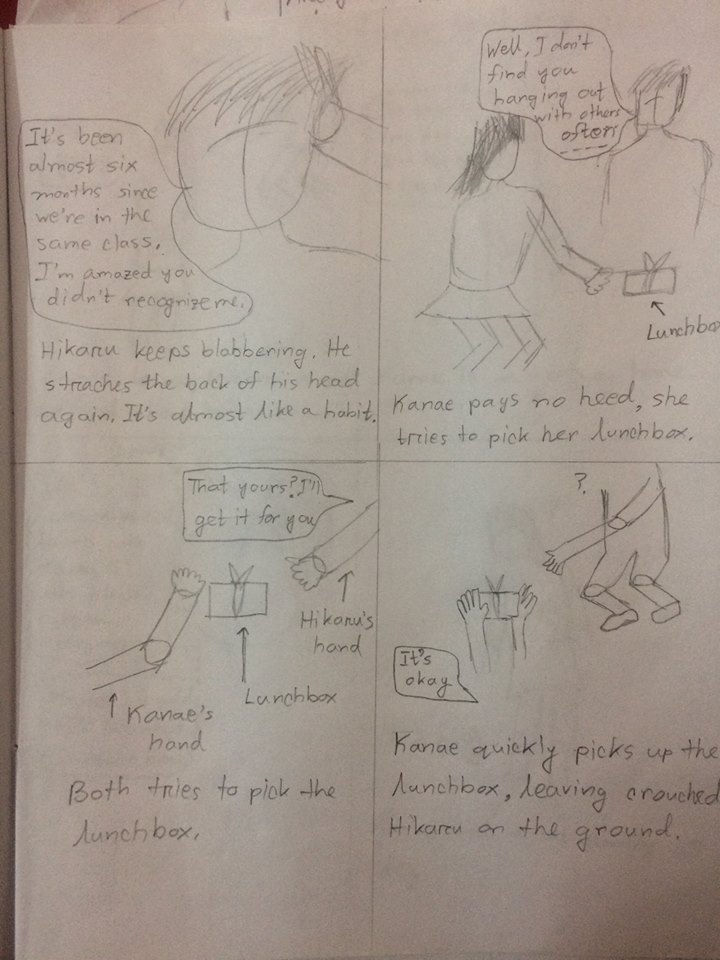 It's been
almost six
months since
we're in the
same class.
I'm amazed you
didn't recognize me.
Hikaru keeps blabbering. He
straches the back of his head
again. It's almost like a habit.
Well, I don't
find you
hanging out
with others
often
Lunchbox
Kanae pays no heed, she
tries to pick her lunchbox.
That yours? I'll
get it for you
Hikaru's
hand
Lunchbox
Kanae's
hand
Both tries to pick the
lunchbox.
?
It's
okay
Kanae quickly picks up the
lunchbox, leaving crouched
Hikaru on the ground.